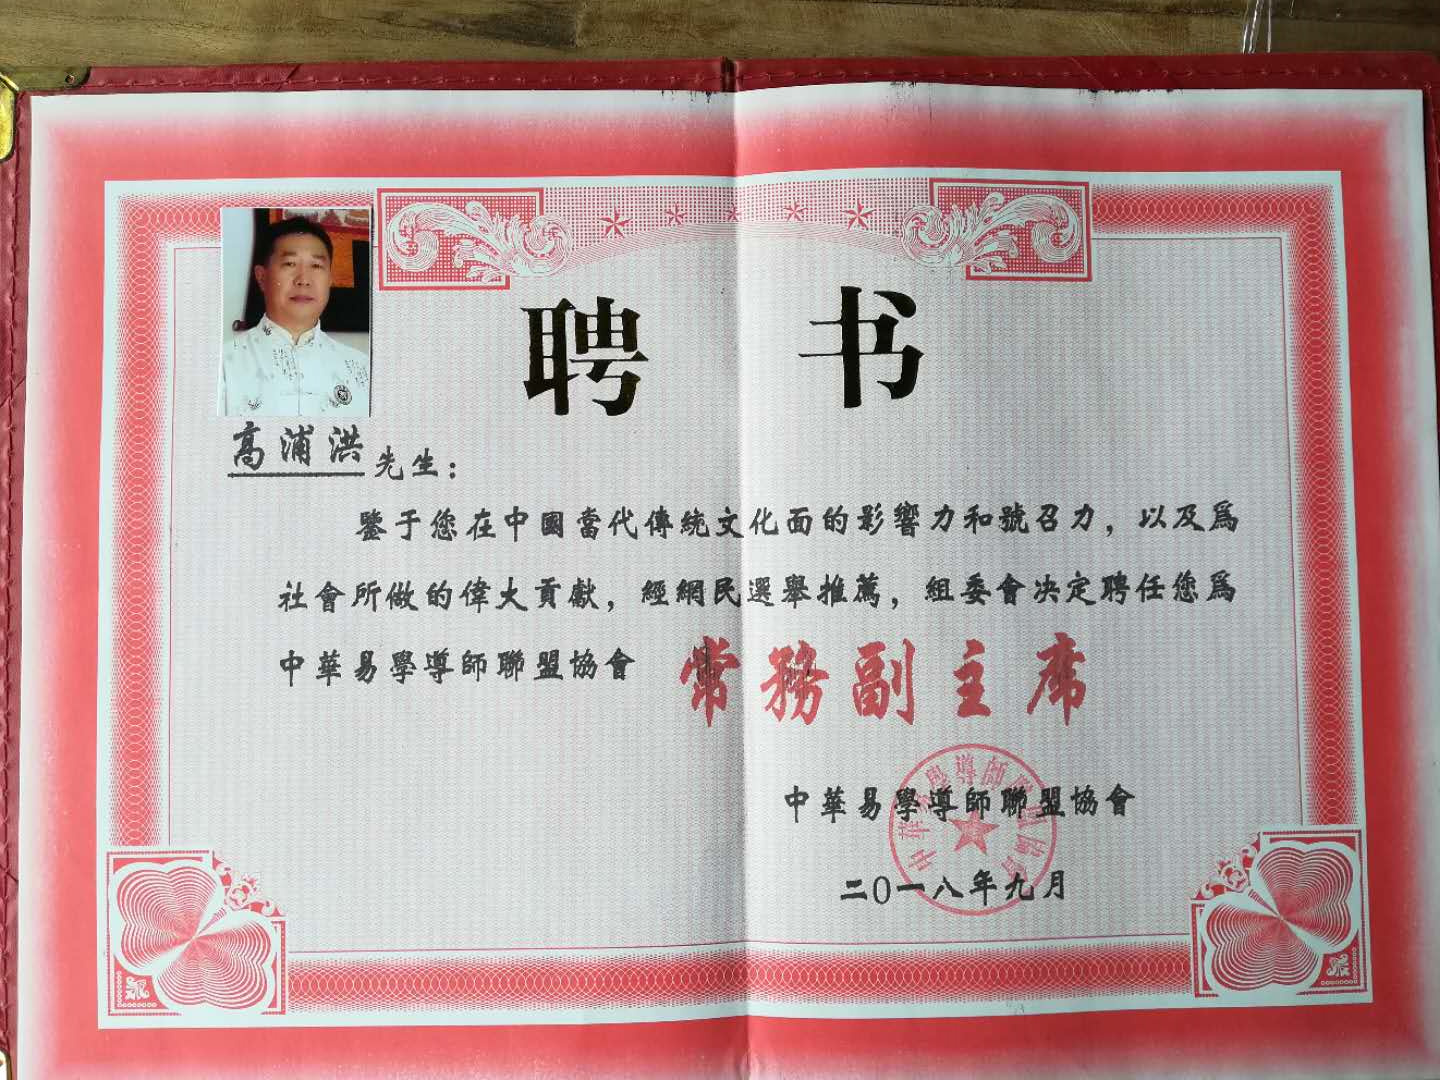 聘书
高浦洪先生：
鑒于您在中國當代傳統文化面的影響力和號召力，以及爲
社會所做的偉大貢獻，經網民選舉推薦，組委會决定聘任您爲
中華易學導師聯盟協會 常務副主席
中華易學導師聯盟協會
中華易學導師聯盟協會
二〇一八年九月